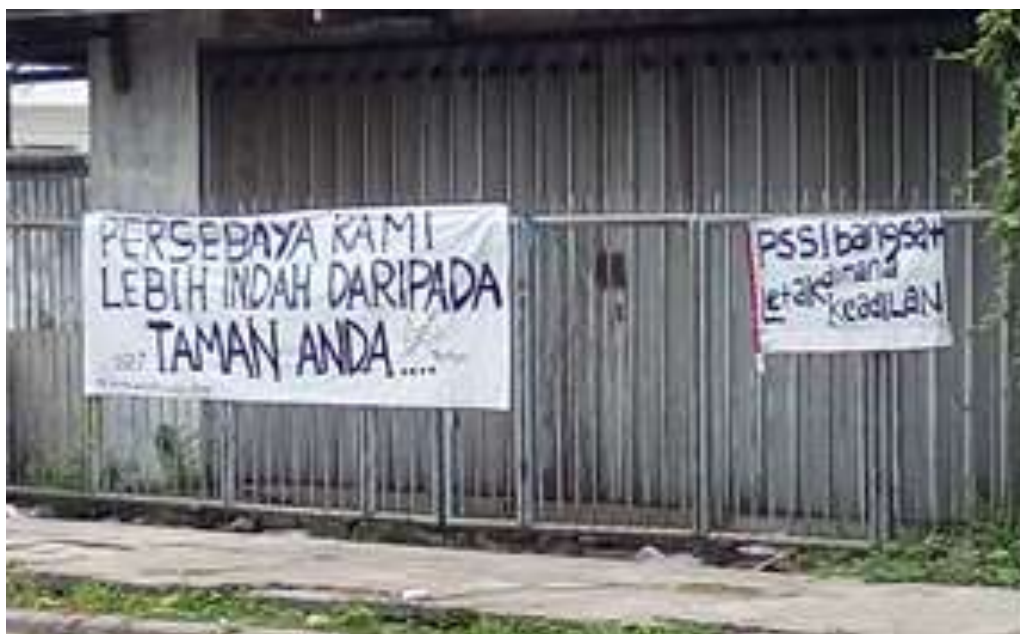 PERSEBAYA KAMI
LEBIH INDAH DARIPADA
TAMAN ANDA....
PSSI bangsat
Letak dimana
KeadiLAN